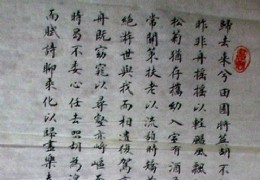 歸去來兮田園將蕪胡不
昨非舟搖搖以輕颺風飄
松菊猶存攜幼入室有酒
常關策扶老以流憩時矯
絕游世與我而相遺復駕
舟既窈窕以尋壑亦崎嶇
時曷不委心任去留胡為
而賦詩聊乘化以歸盡樂